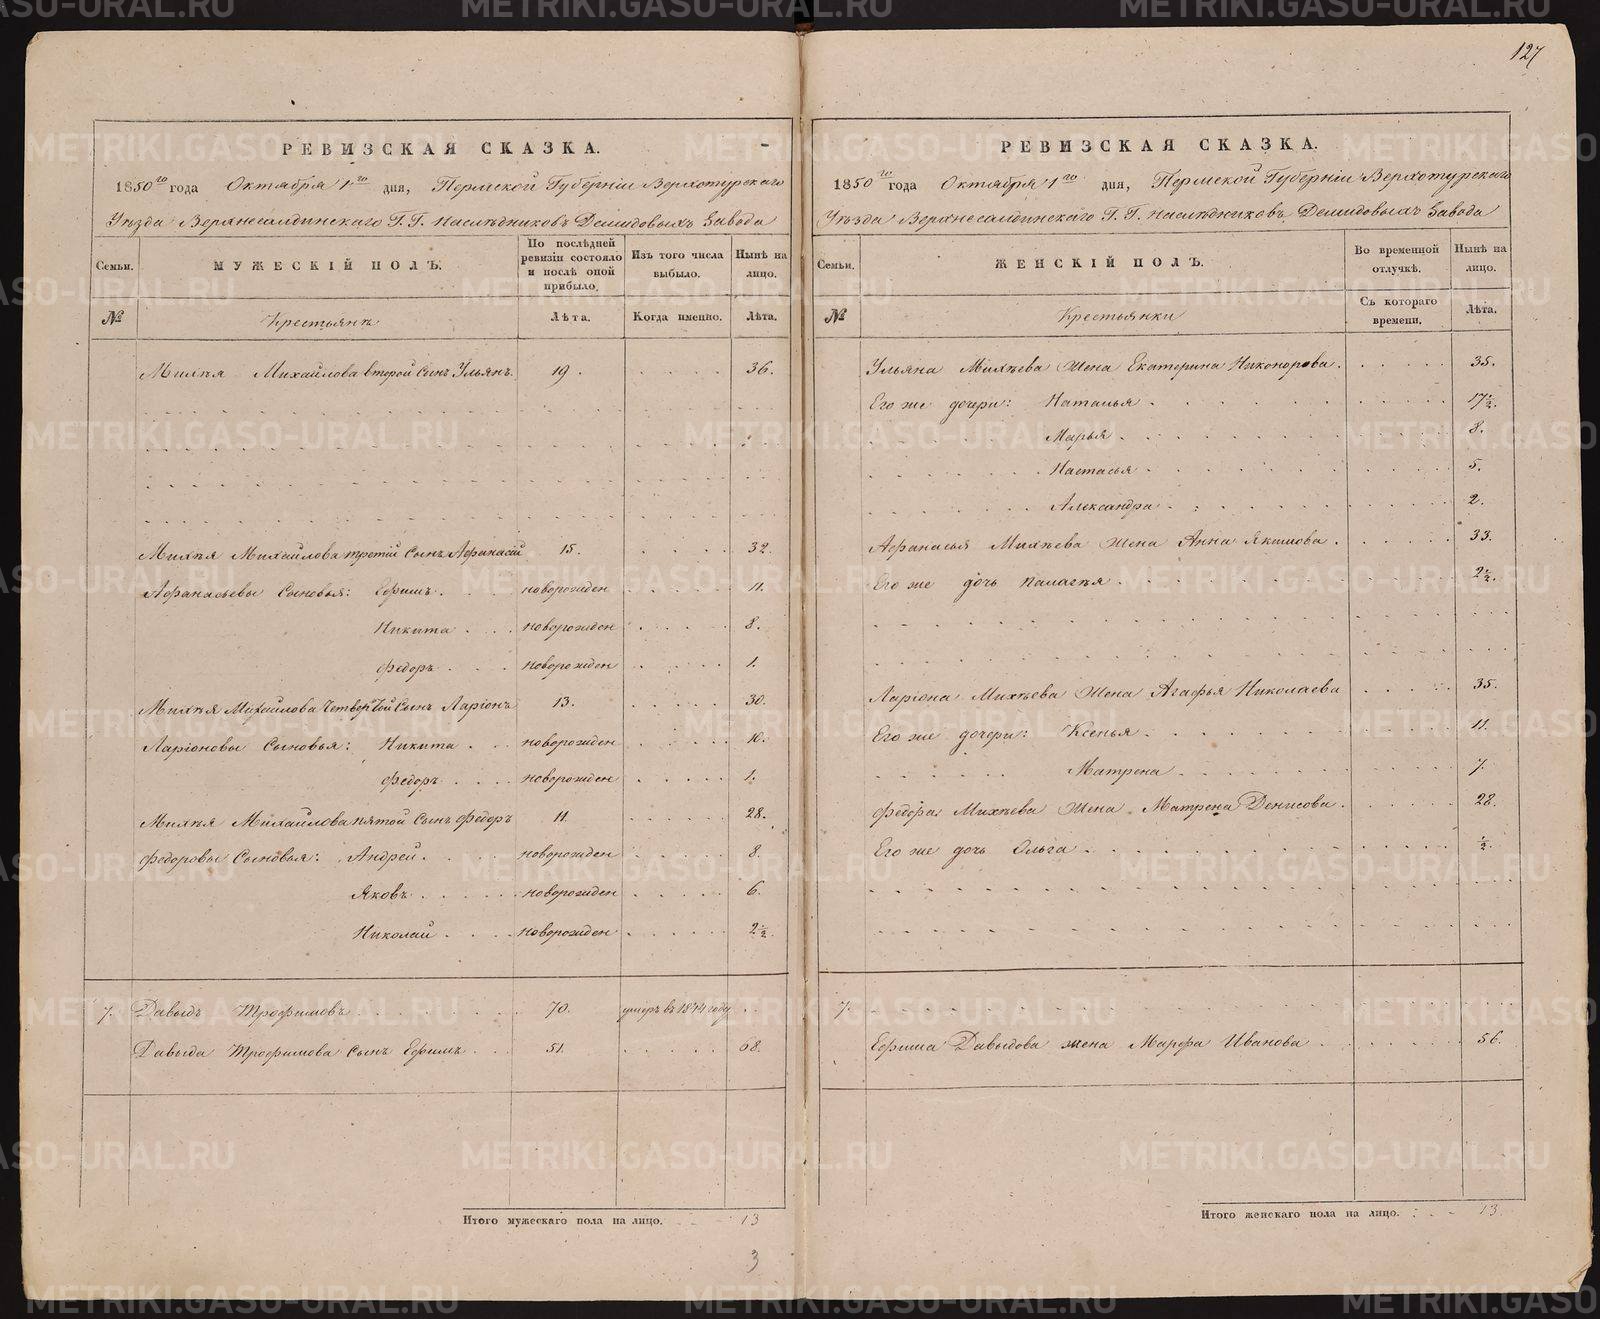 127
РЕВИЗСКАЯ СКАЗКА.
1850го года Октября 1го дня, Пермской Губерніи Верхотурскаго
Уѣзда Верхнесалдинскаго Г.Г. Наслѣдниковъ Демидовыхъ Завода
Семьи. МУЖЕСКІЙ ПОЛЪ. По послѣдней ревизіи состояло и послѣ оной прибыло. Изъ того числа выбыло. Нынѣ на лицо.
№ Крестьянъ Лѣта. Когда именно. Лѣта.
Михѣя Михайлова второй сынъ Ульянъ. 19. 36.
Михѣя Михайлова третій сынъ Афанасій 15. 32.
Афанасьевы Сыновья: Ефимъ. новорожден 11.
Никита новорожден 8.
Федоръ новорожден 1.
Михѣя Михайлова Четвертой Сынъ Ларіонъ 13. 30.
Ларіоновы Сыновья: Никита новорожден 10.
Федоръ новорожден 1.
Михѣя Михайлова пятой Сынъ Федоръ 11. 28.
Федоровы Сыновья: Андрей. новорожден 8.
Яковъ новорожден 6.
Николай новорожден 2½.
7. Давыдъ Трофимовъ 70. умеръ въ 1844 году
Давыда Трофимова Сынъ Ефимъ 51. 68.
Итого мужескаго пола на лицо. 13
3
РЕВИЗСКАЯ СКАЗКА.
1850го года Октября 1го дня, Пермской Губерніи Верхотурскаго
Уѣзда Верхнесалдинскаго Г.Г. Наслѣдниковъ Демидовыхъ Завода
Семьи. ЖЕНСКІЙ ПОЛЪ. Во временной отлучкѣ. Нынѣ на лицо.
№ Крестьянки Съ котораго времени. Лѣта.
Ульяна Михѣева Жена Екатерина Никонорова. 35.
Его же дочери: Наталья 17½.
Марья 8.
Настасья 5.
Александра 2.
Афанасья Михѣева Жена Анна Якимова. 33.
Его же дочь Палагѣя 2½.
Ларіона Михѣева Жена Агафья Николаева 35.
Его же дочери: Ксенья 11.
Матрена 7.
Федора Михѣева Жена Матрена Денисова. 28.
Его же дочь Ольга ½.
7.
Ефима Давыдова жена Марфа Иванова 56.
Итого женскаго пола на лицо. 13.
METRIKI.GASO-URAL.RU